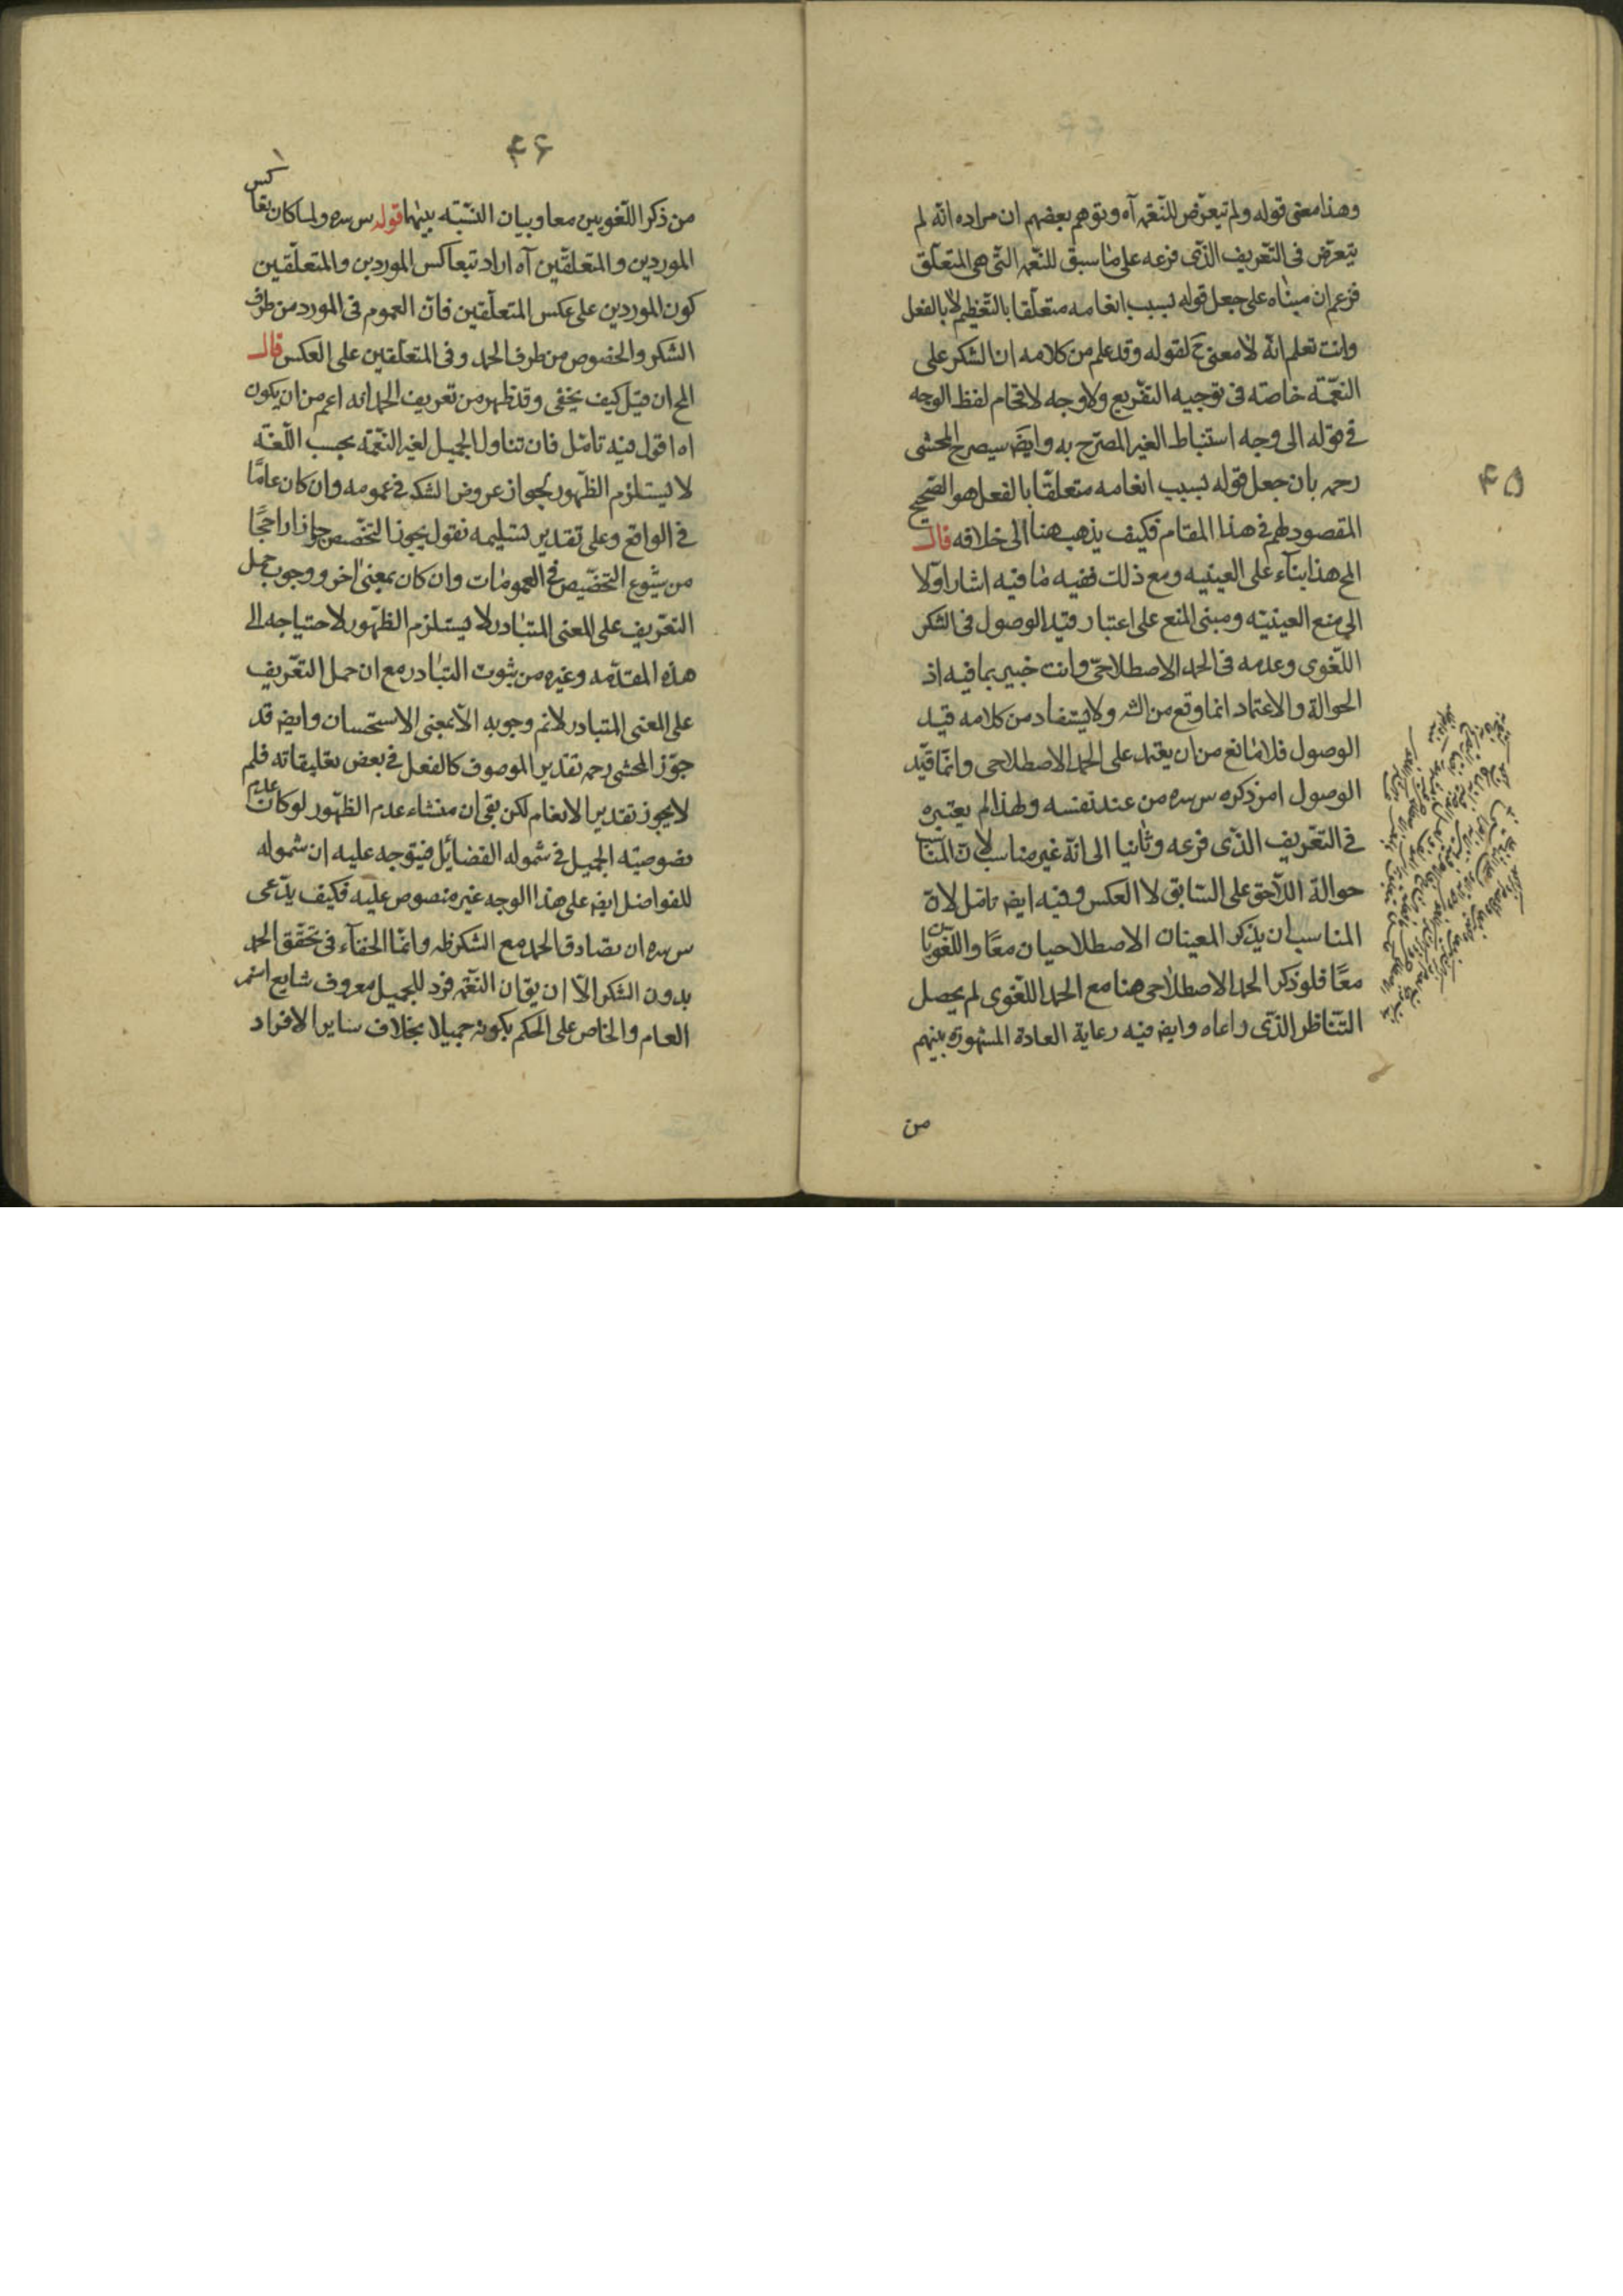 ۴۵
وهذا معنى قوله ولم يتعرّض للنّعمة آه وتوهم بعضهم ان مراده انّه لم
يتعرّض فى التّعريف الذّى فرعه على ما سبق للنّعمة التّى هى المتعلّق
فزعم ان مبناه على جعل قوله بسبب انعامه متعلّقا بالتّعظيم لا بالفعل
وانت تعلم انّه لا معنى ح لقوله وقد علم من كلامه ان الشكر على
النعّمة خاصّه فى توجيه التفّريع ولا وجه لاقحام لفظ الوجه
فى قوله الى وجه استنباط الغير المصرّح به وايضَ سيصرح المحشى
رحمه بان جعل قوله بسبب انعامه متعلّقا بالفعل هو الصّحيح
المقصود لهم فى هذا المقام فكيف يذهب هنا الى خلافه قال
المح هذا بناّء على العينيه ومع ذلك ففيه ما فيه اشار اوّلا
الى منع العينيّه ومبنى المنع على اعتبار قيد الوصول فى الشكر
اللّغوى وعدمه فى الحمد الاصطلاحىّ وانت خبير بما فيه اذ
الحوالة والاعتماد انما وقع من الشه ولا يستفاد من كلامه قيد
الوصول فلا مانع من ان يعتمد على الحمد الاصطلاحى وانّما قيّد
الوصول امر ذكره س سره من عند نفسه ولهذا لم يعتبره
فى التعّريف الذّى فرعه وثانيا الى انّه غير مناسب لان المناسب
حوالة اللّاحق على السّابق لا العكس وفيه ايضَ تامّل لان
المناسب ان يذكر المعينان الاصطلاحيان معًا واللّغويان
معًا فلو ذكر الحمد الاصطلاحى هنا مع الحمد اللّغوى لم يحصل
التّناظر الذّى راعاه وايضَ فيه رعاية العادة المشهورة بينهم
من
۴۶
من ذكر اللّغويين معا وبيان النسّبّه بينهما قوله س سره ولما كان تعاكس
الموردين والمتعلّقين آه اراد بتعاكس الموردين والمتعلّقين
كون الموردين على عكس المتعلّقين فانّ العموم فى المورد من طرف
الشكر والخصوص من طرف الحمد وفى المتعلّقين على العكس قال
المح ان قيل كيف يخفى وقد ظهر من تعريف الحمد انه اعم من ان يكون
اه اقول فيه تامّل فان تناول الجميل لغير النعّمة بحسب اللّغه
لا يستلزم الظّهور لجواز عروض الشك فى عمومه وان كان عامًّا
فى الواقع وعلى تقدير تسليمه نقول يجوز التخصّص جوازا راجحًا
من شيّوع التخصّيص فى العمومات وان كان بمعنى اخر ووجوب حمل
التعّريف على المعنى المتبادر لا يستلزم الظّهور لاحتياجه الى
هذه المقدّمه وغيره من ثبوت التبادر مع ان حمل التعّريف
على المعنى المتبادر لانم وجوبه الّا بمعنى الاستحسان وايضَ قد
جوّز المحشى رحمه تقدير الموصوف كالفعل فى بعض تعليقاته فلم
لا يجوز تقدير الانعام لكن بقى ان منشاء عدم الظّهور لو كان عدم
نصوصيّه الجميل فى شموله الفضائل فيتوجه عليه ان شموله
للفواضل ايضَ على هذا الوجه غير منصوص عليه فكيف يدّعى
س سره ان تصادق الحمد مع الشكر ظه وانمّا الخفآء فى تحقّق الحمد
بدون الشكر الّا ان يق ان النعّمة فرد للجميل معروف شايع
العام والخاص على الحكم بكونه جميلا بخلاف ساير الافراد